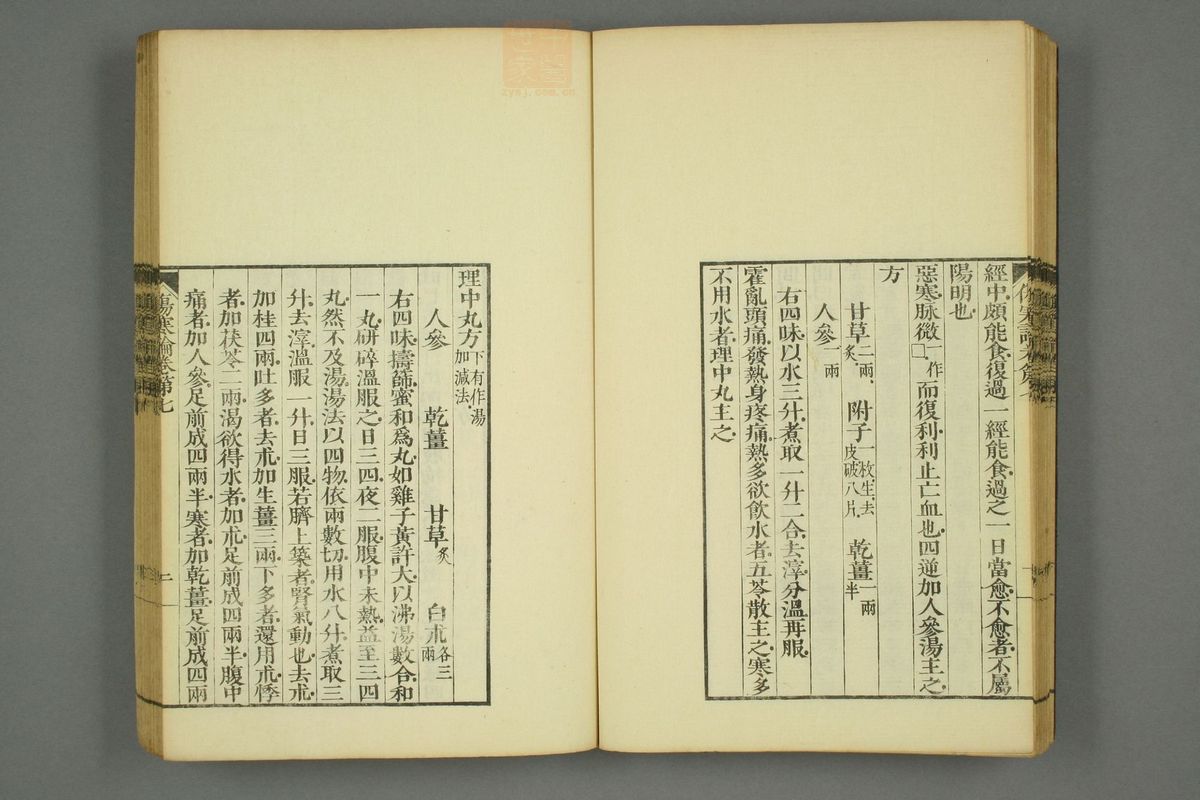 經中頗能食復過一經能食過之一日當愈不愈者不屬
陽明也
惡寒脉微□一作而復利利止亡血也四逆加人參湯主之
方
甘草二兩炙 附子一枚生去皮破八片 乾薑一兩半
人參一兩
右四味以水三升煮取一升二合去滓分溫再服
霍亂頭痛發熱身疼痛熱多欲飲水者五苓散主之寒多
不用水者理中丸主之
理中丸方下有作湯加減法
人參 乾薑 甘草炙 白朮各三兩
右四味擣篩蜜和爲丸如雞子黃許大以沸湯數合和
一丸研碎溫服之日三四夜二服腹中未熱益至三四
丸然不及湯湯法以四物依兩數切用水八升煮取三
升去滓溫服一升日三服若臍上築者腎氣動也去朮
加桂四兩吐多者去朮加生薑三兩下多者還用朮悸
者加茯苓二兩渴欲得水者加朮足前成四兩半腹中
痛者加人參足前成四兩半寒者加乾薑足前成四兩
傷寒論卷第七
二
zysj.com.cn